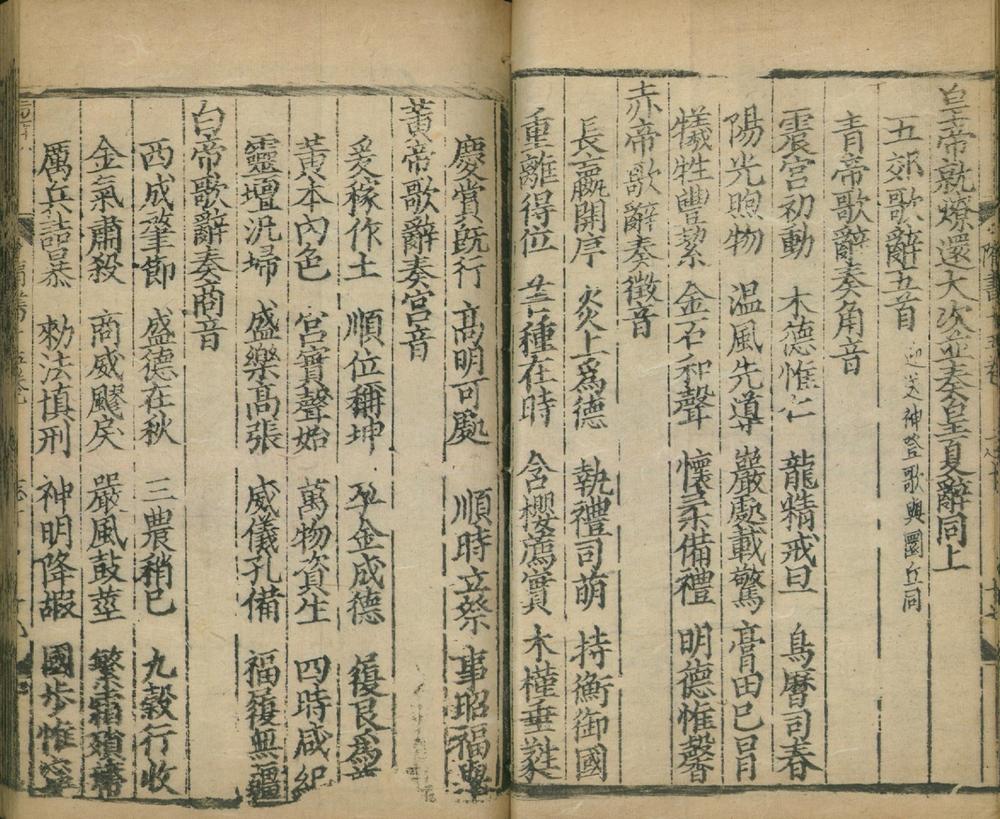 皇帝就燎還大次並奏皇夏辭同上
五郊歌辭五首 迎送神登歌與圜丘同
青帝歌辭奏角音
震宮初動 木德惟仁 龍精戒旦 鳥曆司春
陽光煦物 温風先導 巖處載驚 膏田已冒
犧牲豐絜 金石和聲 懷柔備禮 明德惟馨
赤帝歌辭奏徵音
長嬴開序 炎上爲德 執禮司萌 持衡御國
重離得位 芒種在時 含櫻薦實 木槿垂蕤
慶賞旣行 高明可處 順時立祭 事昭福舉
黃帝歌辭奏宮音
爰稼作土 順位稱坤 孕金成德 履艮爲
黃本內色 宮實聲始 萬物資生 四時咸紀
靈壇汎埽 盛樂高張 威儀孔備 福履無疆
白帝歌辭奏商音
西成肇節 盛德在秋 三農稍已 九穀行收
金氣肅殺 商威飂戾 嚴風鼓莖 繁霜殞蔕
厲兵詰暴 勑法愼刑 神明降嘏 國步惟寧